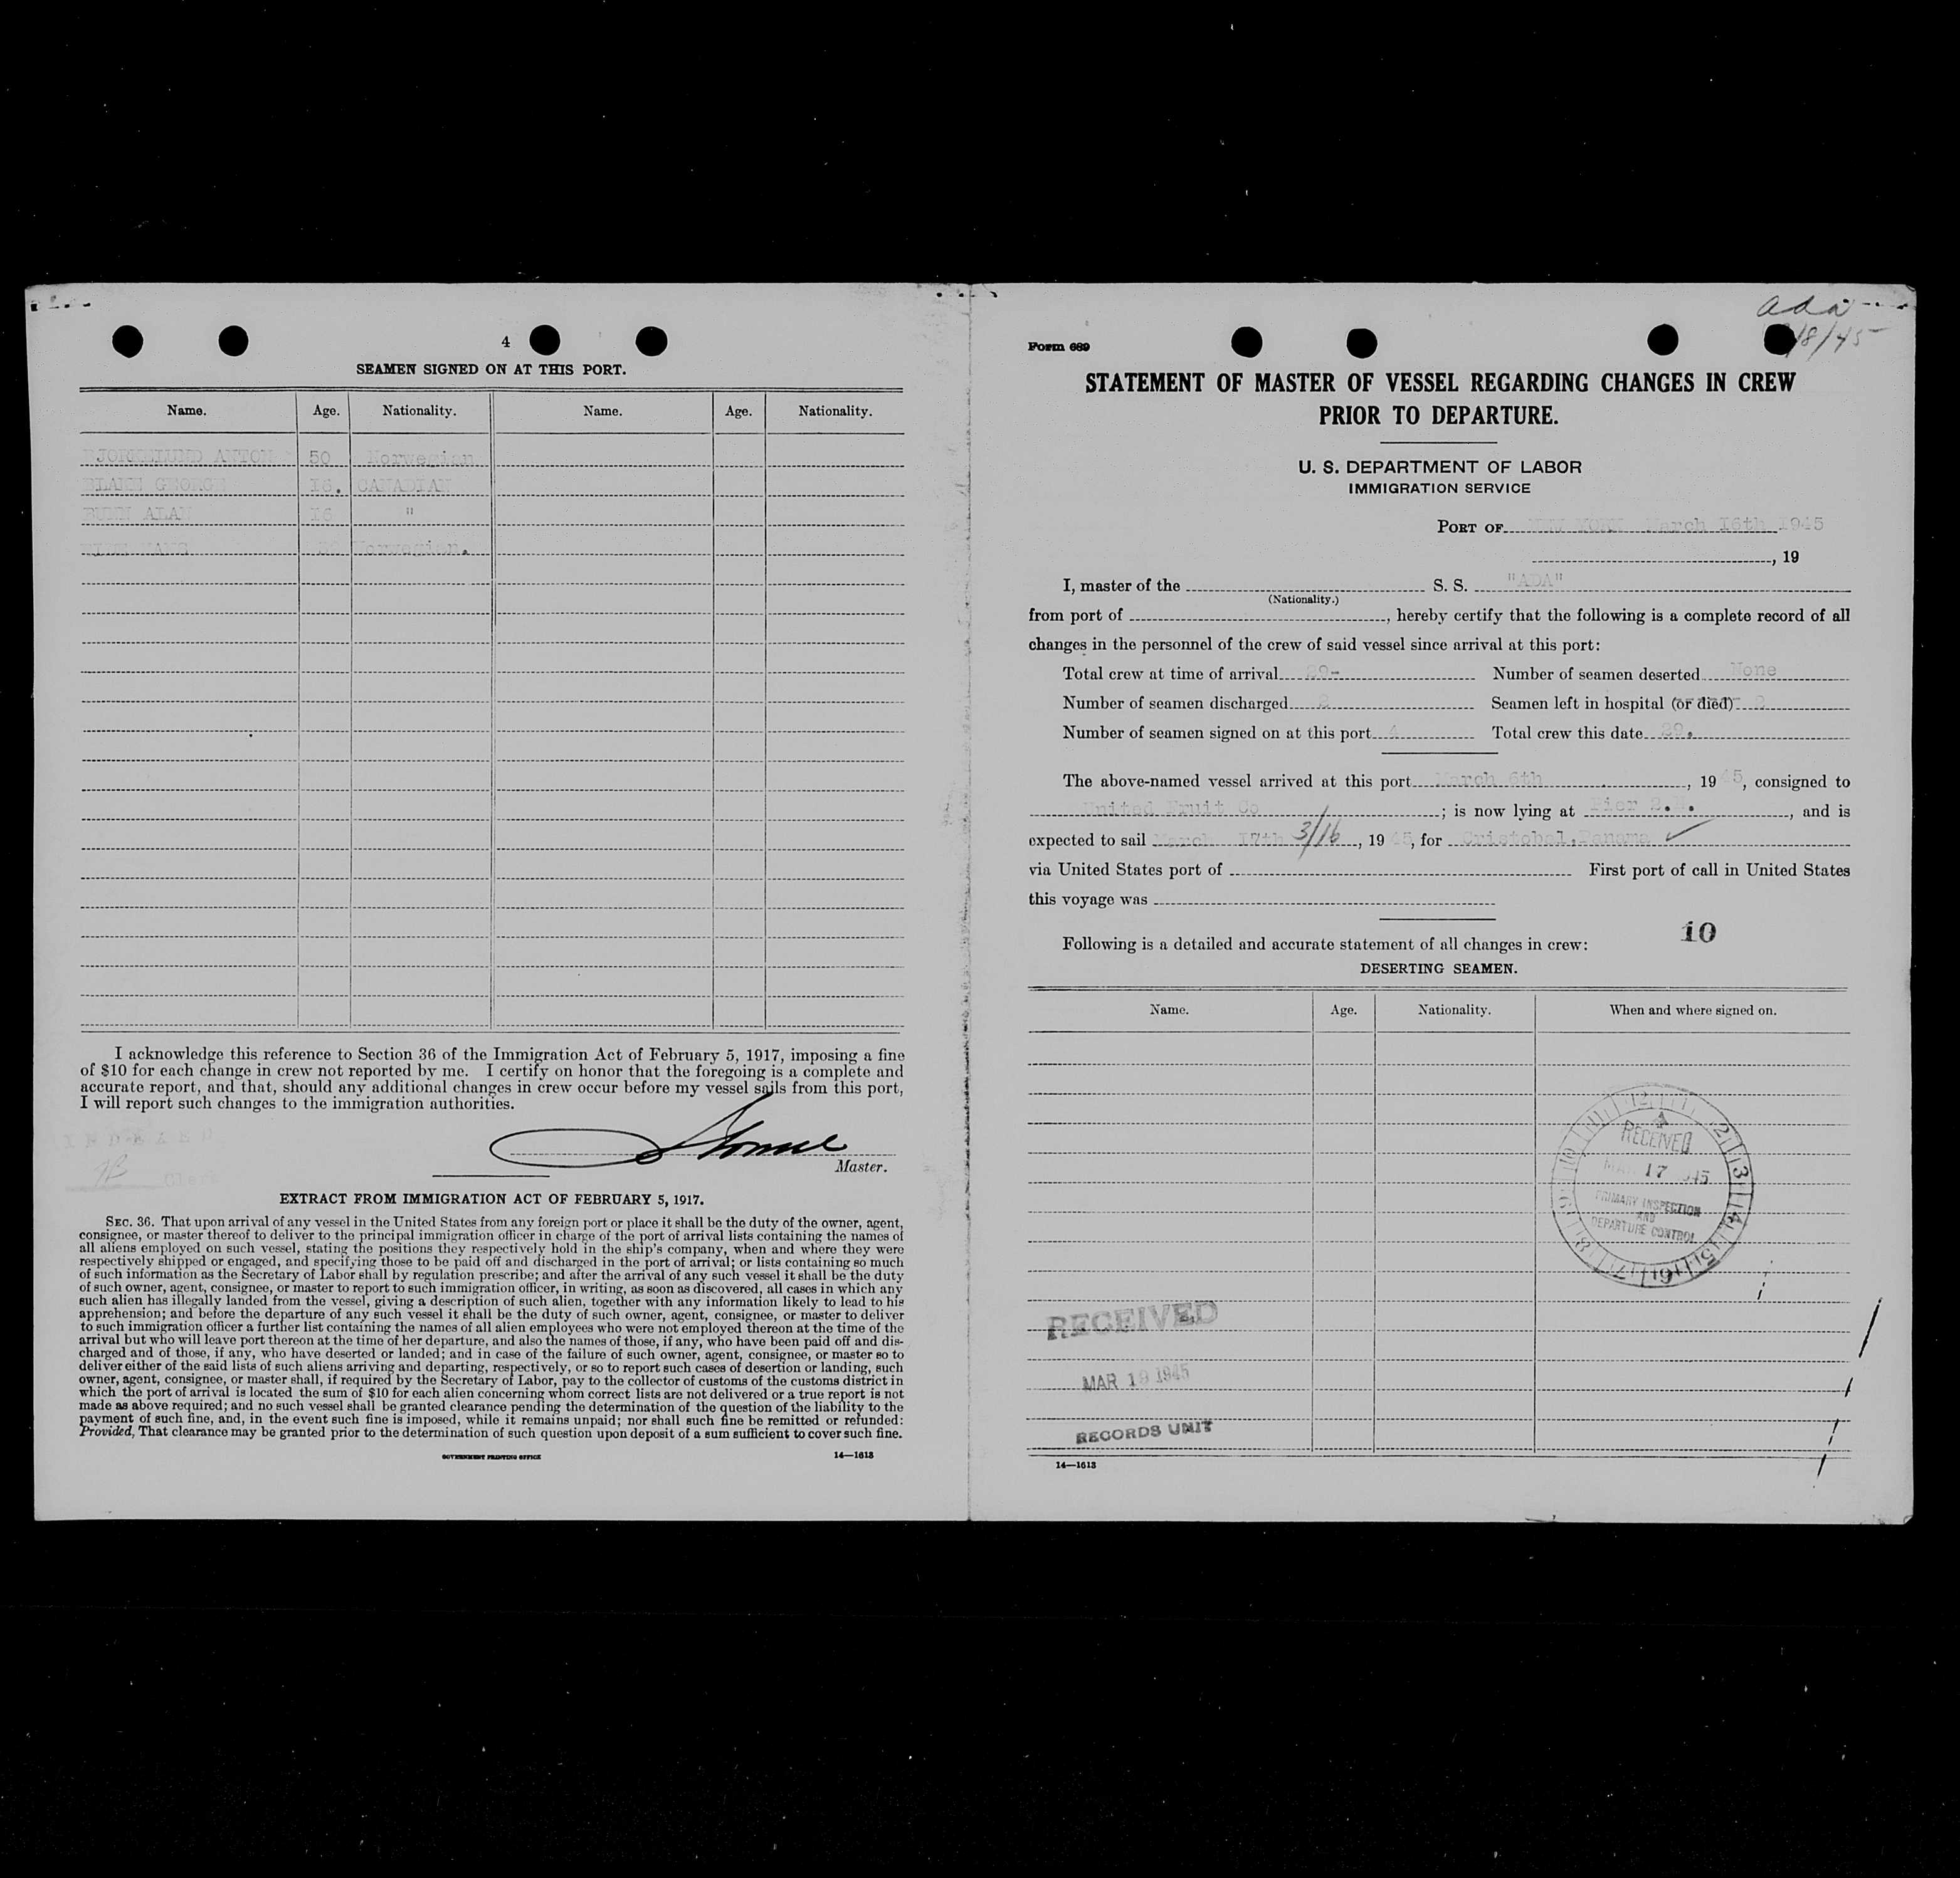 4
SEAMEN SIGNED ON AT THIS PORT.
Name. Age. Nationality. Name. Age. Nationality.
ANTON 50 Norwegian
BLAKE GEORGE 16. CANADIAN
BUNN ALAN 16 "
HANS Norwegian.
I acknowledge this reference to Section 36 of the Immigration Act of February 5, 1917, imposing a fine
of $10 for each change in crew not reported by me. I certify on honor that the foregoing is a complete and
accurate report, and that, should any additional changes in crew occur before my vessel sails from this port,
I will report such changes to the immigration authorities.
INDEXED
Clerk
Master.
EXTRACT FROM IMMIGRATION ACT OF FEBRUARY 5, 1917.
SEC. 36. That upon arrival of any vessel in the United States from any foreign port or place it shall be the duty of the owner, agent,
consignee, or master thereof to deliver to the principal immigration officer in charge of the port of arrival lists containing the names of
all aliens employed on such vessel, stating the positions they respectively hold in the ship's company, when and where they were
respectively shipped or engaged, and specifying those to be paid off and discharged in the port of arrival; or lists containing so much
of such information as the Secretary of Labor shall by regulation prescribe; and after the arrival of any such vessel it shall be the duty
of such owner, agent, consignee, or master to report to such immigration officer, in writing, as soon as discovered, all cases in which any
such alien has illegally landed from the vessel, giving a description of such alien, together with any information likely to lead to his
apprehension; and before the departure of any such vessel it shall be the duty of such owner, agent, consignee, or master to deliver
to such immigration officer a further list containing the names of all alien employees who were not employed thereon at the time of the
arrival but who will leave port thereon at the time of her departure, and also the names of those, if any, who have been paid off and dis-
charged and of those, if any, who have deserted or landed; and in case of the failure of such owner, agent, consignee, or master so to
deliver either of the said lists of such aliens arriving and departing, respectively, or so to report such cases of desertion or landing, such
owner, agent, consignee, or master shall, if required by the Secretary of Labor, pay to the collector of customs of the customs district in
which the port of arrival is located the sum of $10 for each alien concerning whom correct lists are not delivered or a true report is not
made as above required; and no such vessel shall be granted clearance pending the determination of the question of the liability to the
payment of such fine, and, in the event such fine is imposed, while it remains unpaid; nor shall such fine be remitted or refunded:
Provided, That clearance may be granted prior to the determination of such question upon deposit of a sum sufficient to cover such fine.
GOVERNMENT PRINTING OFFICE 14—1613
Ada
18/45
Form 689
STATEMENT OF MASTER OF VESSEL REGARDING CHANGES IN CREW
PRIOR TO DEPARTURE.
U. S. DEPARTMENT OF LABOR
IMMIGRATION SERVICE
PORT OF NEW YORK March 16th 1945
, 19
I, master of the S. S. "ADA"
(Nationality.)
from port of , hereby certify that the following is a complete record of all
changes in the personnel of the crew of said vessel since arrival at this port:
Total crew at time of arrival Number of seamen deserted None
Number of seamen discharged Seamen left in hospital (or died)
Number of seamen signed on at this port 4 Total crew this date
The above-named vessel arrived at this port March 6th , 1945, consigned to
United Fruit Co ; is now lying at Pier , and is
expected to sail March 17th 3/16 , 1945, for Cristobal, Panama
via United States port of First port of call in United States
this voyage was
10
Following is a detailed and accurate statement of all changes in crew:
DESERTING SEAMEN.
Name. Age. Nationality. When and where signed on.
RECEIVED
MAR 17 1945
PRIMARY INSPECTION
AND
DEPARTURE CONTROL
RECEIVED
MAR 19 1945
RECORDS UNIT
14—1613